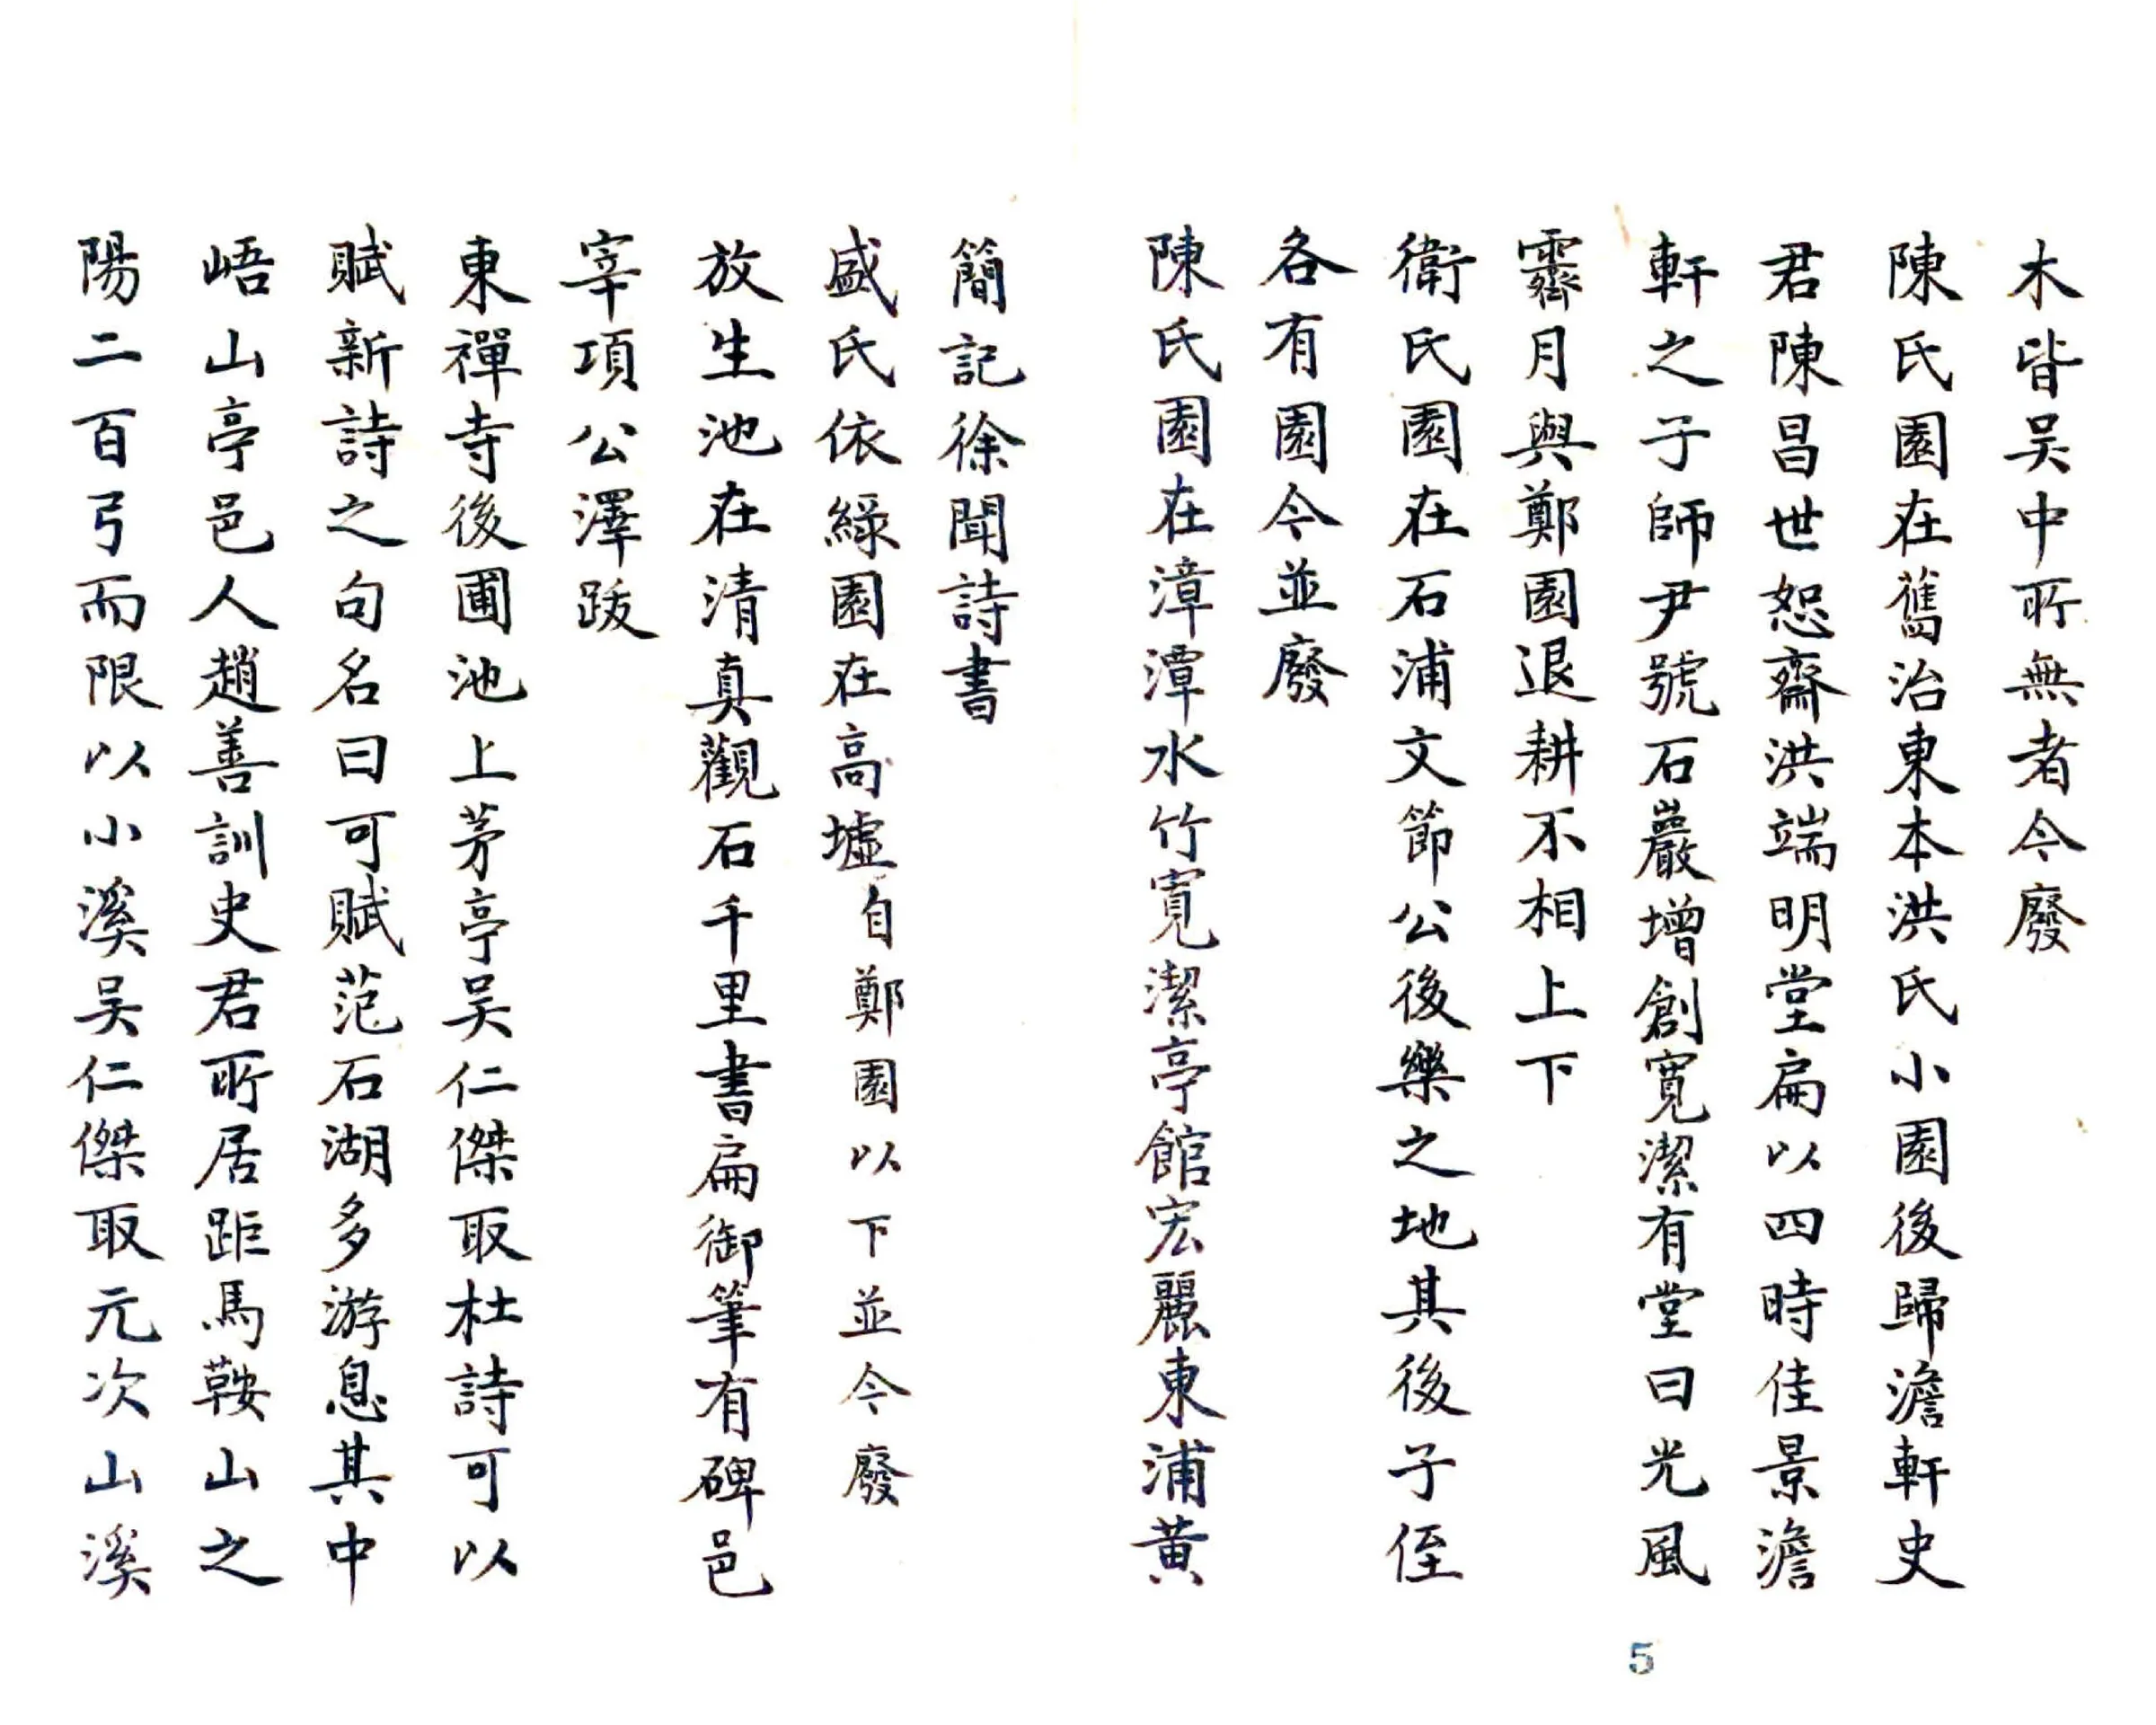 木皆吴中所無者今廢
陳氏園在舊治東本洪氏小園後歸澹軒史
君陳昌世恕齋洪端明堂扁以四時佳景澹
軒之子師尹號石巖增創寬潔有堂曰光風
霽月與鄭園退耕不相上下
衛氏園在石浦文節公後樂之地其後子侄
各有園今並廢
陳氏園在漳潭水竹寬潔亭館宏麗東浦黄
簡記徐聞詩書
盛氏依綠園在高墟自鄭園以下並今廢
放生池在清真觀石千里書扁御筆有碑邑
宰項公澤跋
東禪寺後圃池上茅亭吴仁傑取杜詩可以
賦新詩之句名曰可賦范石湖多游息其中
峿山亭邑人趙善訓史君所居距馬鞍山之
陽二百弓而限以小溪吴仁傑取元次山溪
5